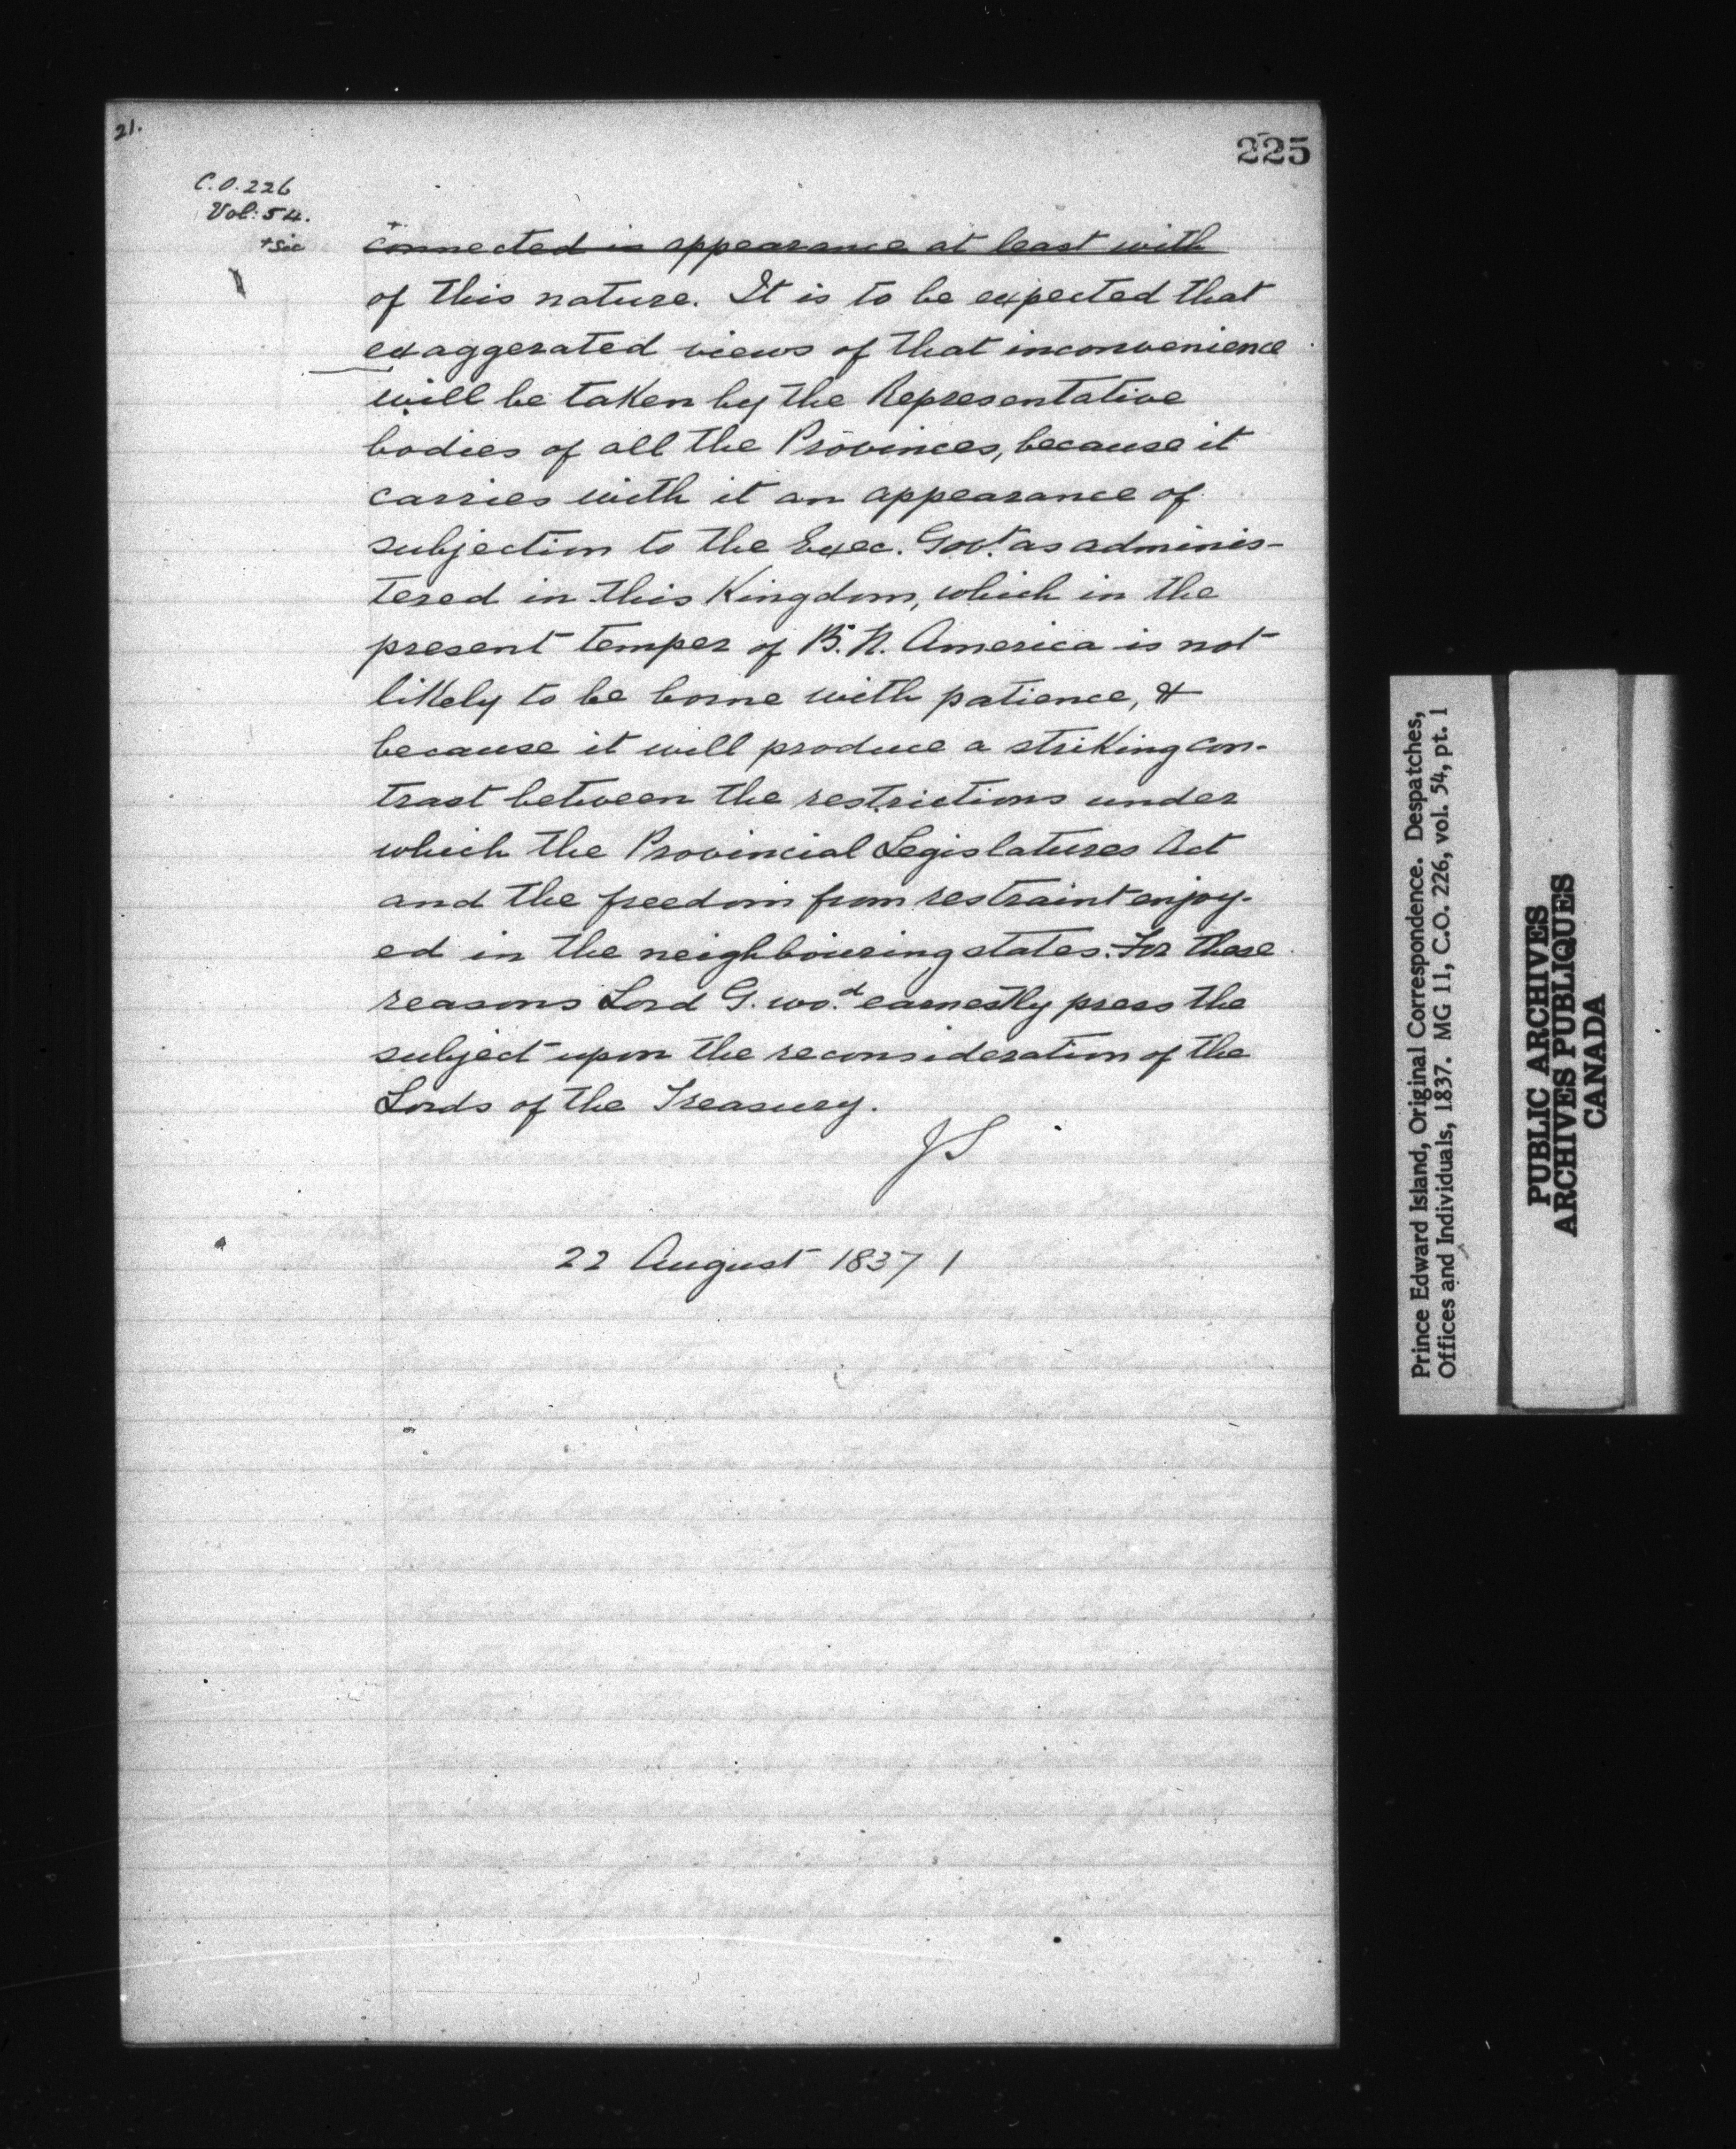 21.
225
C.O. 226
Vol: 54.
+sic
+
connected in appearance at least with
of this nature. It is to be expected that
exaggerated views of that inconvenience
will be taken by the Representative
bodies of all the Provinces, because it
carries with it an appearance of
subjection to the Exec. Govt. as adminis-
tered in this Kingdom, which in the
present temper of B. N. America is not
likely to be borne with patience, &
because it will produce a striking con-
trast between the restrictions under
which the Provincial Legislatures Act
and the freedom from restraint enjoy-
ed in the neighbouring states. For these
reasons Lord G. wod. earnestly press the
subject upon the reconsideration of the
Lords of the Treasury.
JS
22 August 1837 /
Prince Edward Island, Original Correspondence. Despatches,
Offices and Individuals, 1837. MG 11, C.O. 226, vol. 54, pt. 1
PUBLIC ARCHIVES
ARCHIVES PUBLIQUES
CANADA